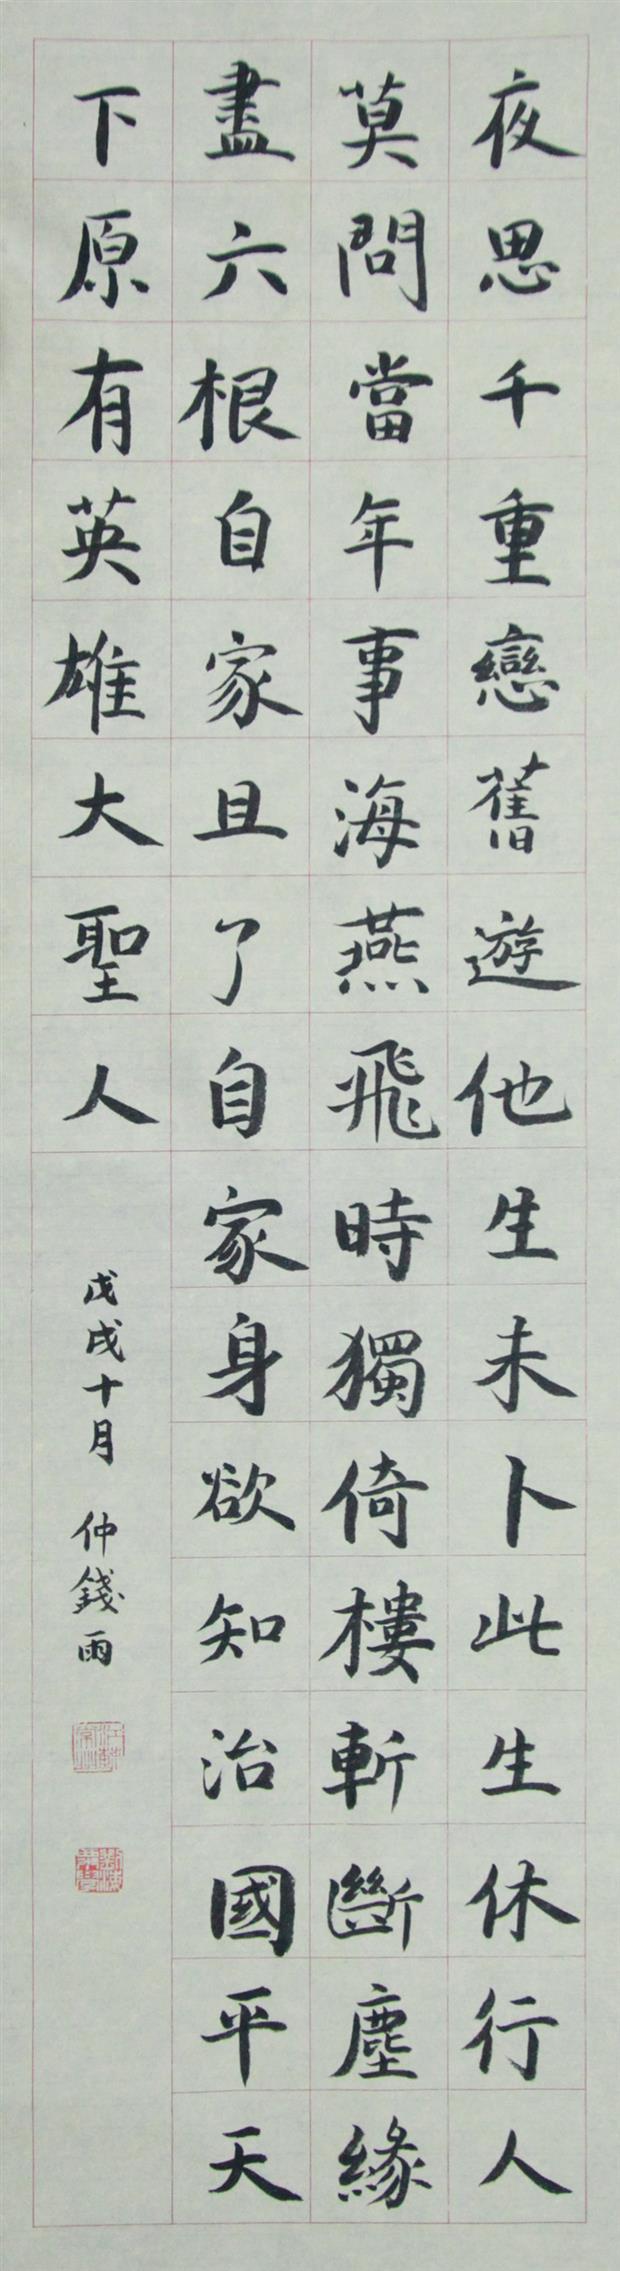 夜思千重戀舊遊他生未卜此生休行人
莫問當年事海燕飛時獨倚樓斬斷塵緣
盡六根自家且了自家身欲知治國平天
下原有英雄大聖人
戊戌十月 仲錢雨